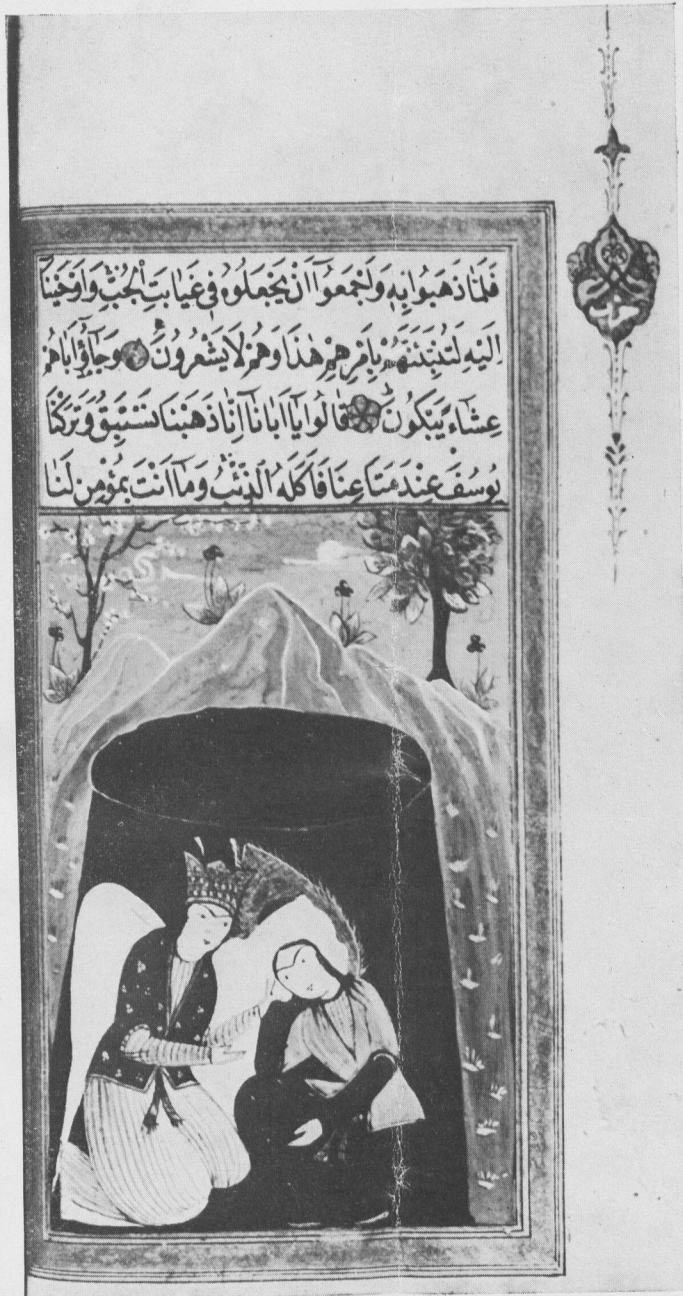 فَلَمَّا ذَهَبُوا بِهِ وَاَجْمَعُوٓا اَنْ يَجْعَلُوهُ فِي غَيَابَتِ الْجُبِّ وَاَوْحَيْنَآ
اِلَيْهِ لَتُنَبِّئَنَّهُمْ بِاَمْرِهِمْ هٰذَا وَهُمْ لَا يَشْعُرُونَ وَجَآؤُٓا اَبَاهُمْ
عِشَآءً يَبْكُونَ قَالُوا يَآ اَبَانَآ اِنَّا ذَهَبْنَا نَسْتَبِقُ وَتَرَكْنَا
يُوسُفَ عِنْدَ مَتَاعِنَا فَاَكَلَهُ الذِّئْبُ وَمَآ اَنْتَ بِمُؤْمِنٍ لَنَا